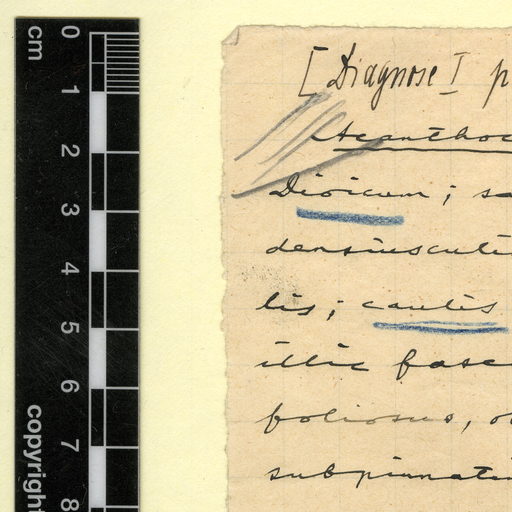 cm
0
1
2
3
4
5
6
7
8
copyright
[Diagnose I p
Acanthoc
Dioicum; sa
densiuscul
lis; caulis
illic fasc
foliosus, o
subpinnati